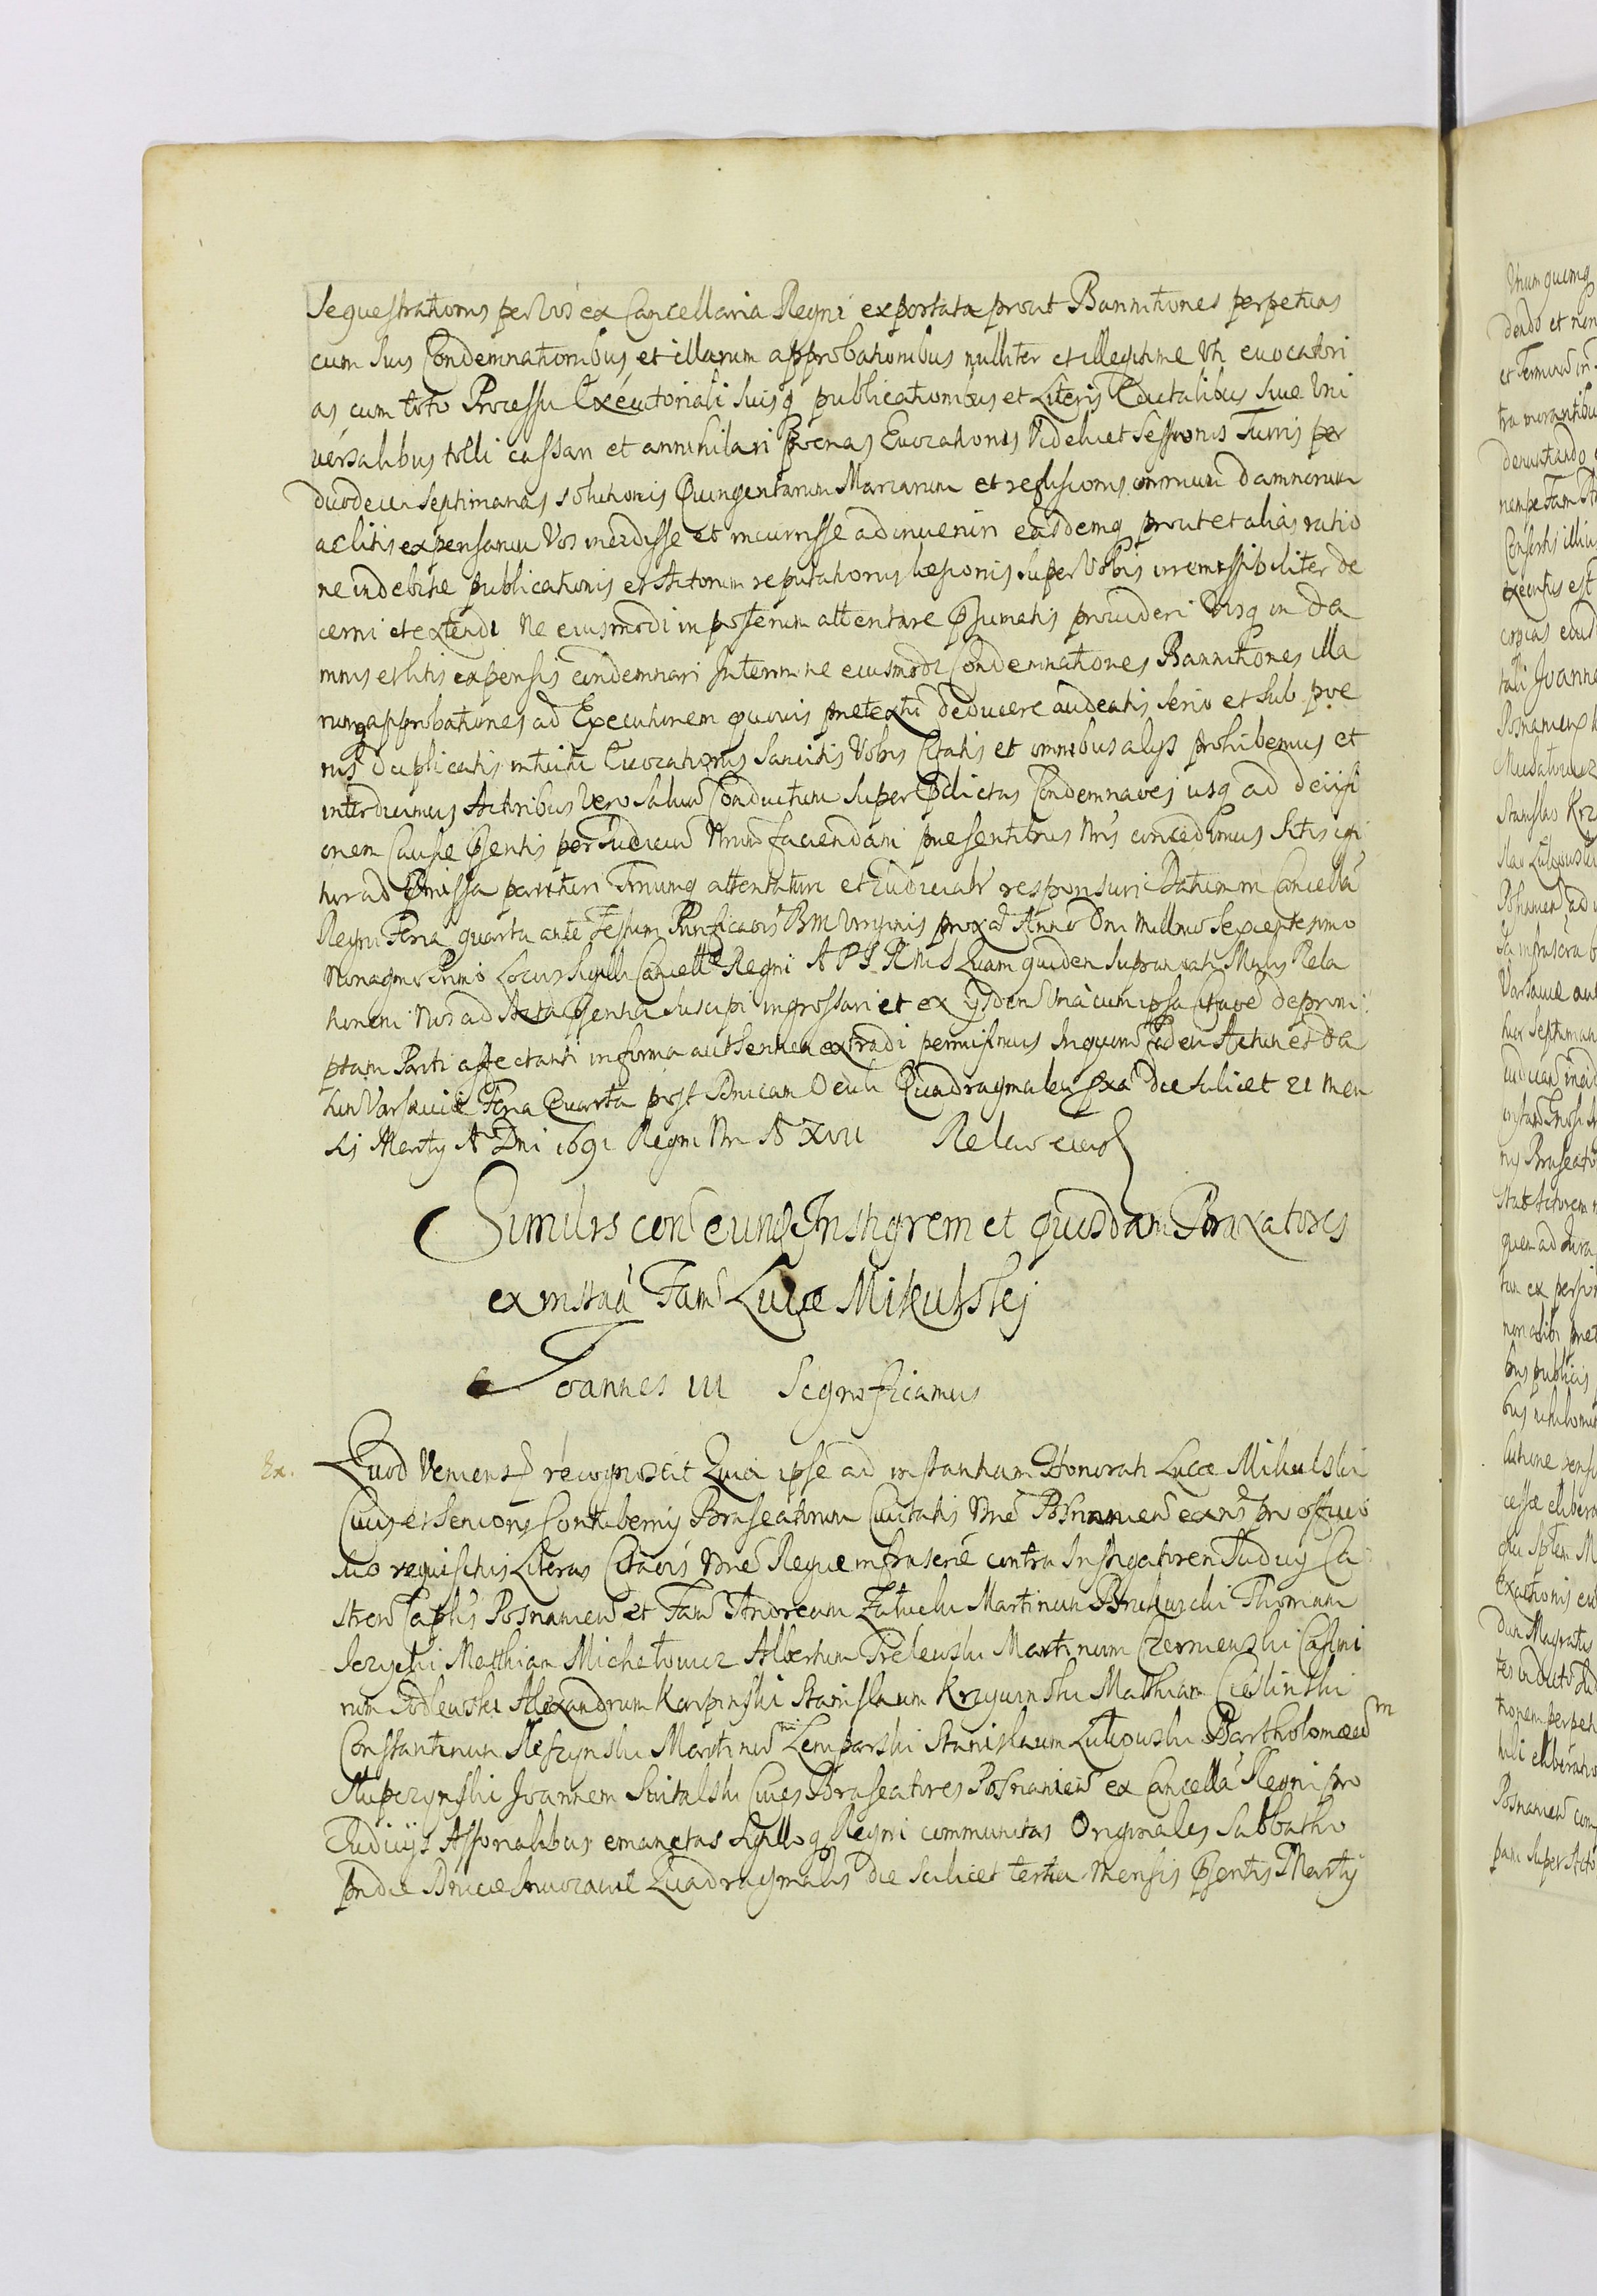 Sequestrationis per Vos ex Cancellaria Regni exportata prout Bannitiones perpetuas
cum suis Condemnationibus et illarum approbationibus nulliter et illegitime Vti evocatori
as cum toto Processu Executoriali suisq publicationibus et Literis Edictalibus sive Vni
versalibus tolli cassari et annihilari Poenas Evocationis Videlicet Sessionis Turris per
duodecim Septimanas solutionis Quingentarum Marcarum et refusionis omnium damnorum
ac litis expensarum Vos incidisse et incurrisse adinveniri easdemq prout et alias ratio
ne indebitae publicationis et Actorum reputationis laesionis super Vobis irremissibiliter de
cerni et extendi Ne eiusmodi in posterum attentare psumatis provideri Vosq in da
mnis et litis expensis condemnari Interim ne eiusmodi Condemnationes Bannitiones illa
rumq approbationes ad Executionem quovis praetextu deducere audeatis serio et sub poe
nis duplicatis intuitu Evocationis sancitis Vobis Citatis et omnibus alijs prohibemus et
interdicimus Actoribus Vero Salvum Conductum super pdictas Condemnaoes usq ad decisi
onem Causae psentis per Judicium Nrum faciendam praesentibus Nris concedimus Sitis igi
tur ad pmissa parituri Tnumq attentaturi et Judicialr responsuri Datum in Cancella
Regni Feria quarta ante Festum Purificaois BM Virginis proxa Anno Dni Millmo Sexcentesimo
Nonagmo Primo Locus Sigilli Cancellae Regni A P S R M S Quam quidem supranoati Mnlis Rela
tionem Nos ad Acta psentia suscipi ingrossari et ex ijsdem Una cum ipsa Citaoe depromi
ptam Parti affectanti in forma authentica extradi permisimus In quorum fidem Actum et Da
tum Varsaviae Feria Quarta post Dnicam Oculi Quadragmalem pxa die scilicet 21 Men
sis Martij A Dni 1691 Regni Nri A XVII Relaio eiusd
Similis con eund Instigrem et quosdam Braxatores
ex instaa Fam Lucae Mikulskj
Joannes III Significamus
Ex. Quod Veniens recognoscit Quia ipse ad instantiam Honorati Lucae Mikulski
Civis et Senioris Contubernij Braseatorum Civitatis Nrae Posnanien eand pro officio
suo requisitus Literas Citaois Nrae Regiae infrascrie contra Instigatorem Judicij Ca
stren Caplis Posnanien et Fam Andream Zatucki Martinum Thomam
Matthiam Michelowicz Albertum Martinum Czerniewski Casimi
rum Godlewski Alexandrum Karpinski Stanislaum Krzywinski Mathiam Cieslinski
Constantinum Martinum Lemparski Stanislaum Bartholomaeum
Slupczynski Joannem Skitalski Cives Braseatores Posnanien ex Cancella Regni pro
Judicijs Assorialibus emanatas Sigilloq Regni communitas Originales Sabbatho
pridie Dnicae Invocavit Quadragmalis die scilicet tertia Mensis psentis Martij